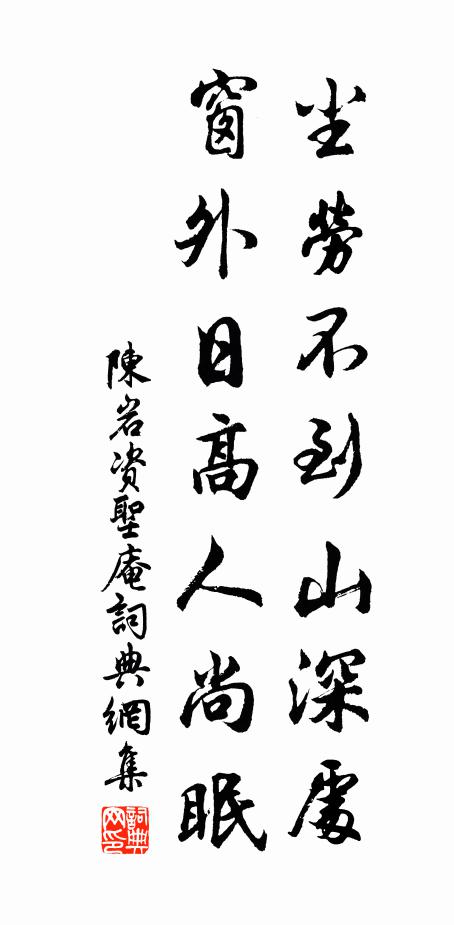 尘勞不到山深處
窗外日高人尚眠
陳岩资聖庵詞典網集
詞典网印